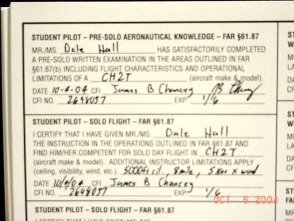 STUDENT PILOT – PRE-SOLO AERONAUTICAL KNOWLEDGE – FAR §61.87
MR./MS. Dale Hall HAS SATISFACTORILY COMPLETED
A PRE-SOLO WRITTEN EXAMINATION IN THE AREAS OUTLINED IN FAR
§61.87(b) INCLUDING FLIGHT CHARACTERISTICS AND OPERATIONAL
LIMITATIONS OF A CH2T (aircraft make & model).
DATE 10-6-04 CFI James B Chancey
CFI NO. 2698057 EXP 1/6
STUDENT PILOT – SOLO FLIGHT – FAR §61.87
I CERTIFY THAT I HAVE GIVEN MR./MS. Dale Hall
THE INSTRUCTION IN THE OPERATIONS OUTLINED IN FAR §61.87 AND
FIND HIM/HER COMPETENT FOR SOLO DAY FLIGHT IN CH2T
(aircraft make & model). ADDITIONAL INSTRUCTOR LIMITATIONS APPLY
(ceiling, visibility, wind, etc.). 5000 8 mile, 5 x wind
DATE 10/6/04 CFI James B Chancey
CFI NO. 2698057 EXP 1/6
OCT 6 2004
STUDENT PILOT – SOLO FLIGHT – FAR §61.87